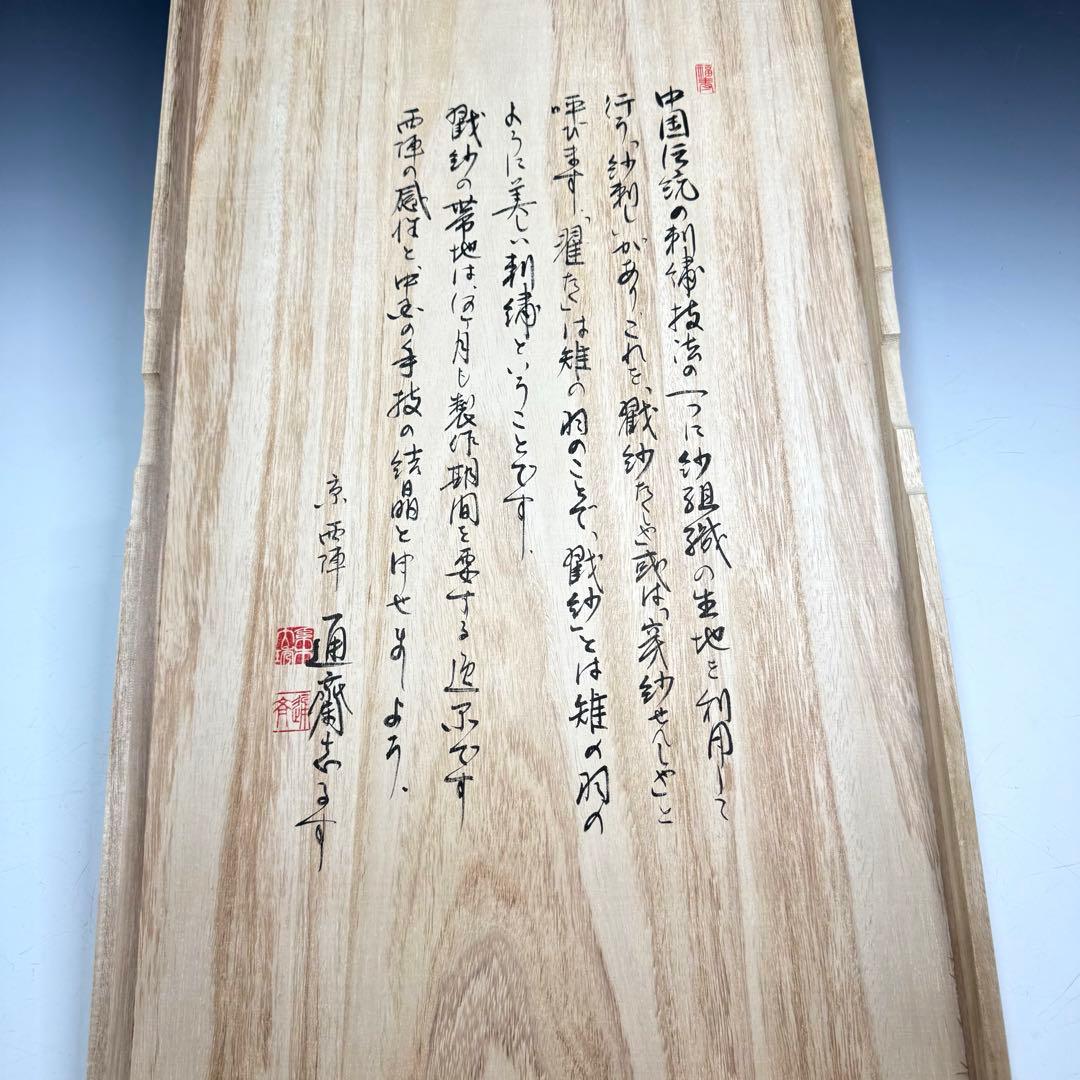 中国伝統の刺繍技法の一つに紗組織の生地を利用して
行う、「紗刺し」があり、これを、戳紗たくしゃ或は、「穿紗せんしゃ」と
呼びます。「濯たく」は雉の羽のことで、「戳紗」とは雉の羽の
ように美しい刺繍ということです。
戳紗の帯地は、何ヶ月も製作期間を要する逸品です
西陣の感性と中国の手技の結晶と申せましょう。
京 西陣
通斎志るす